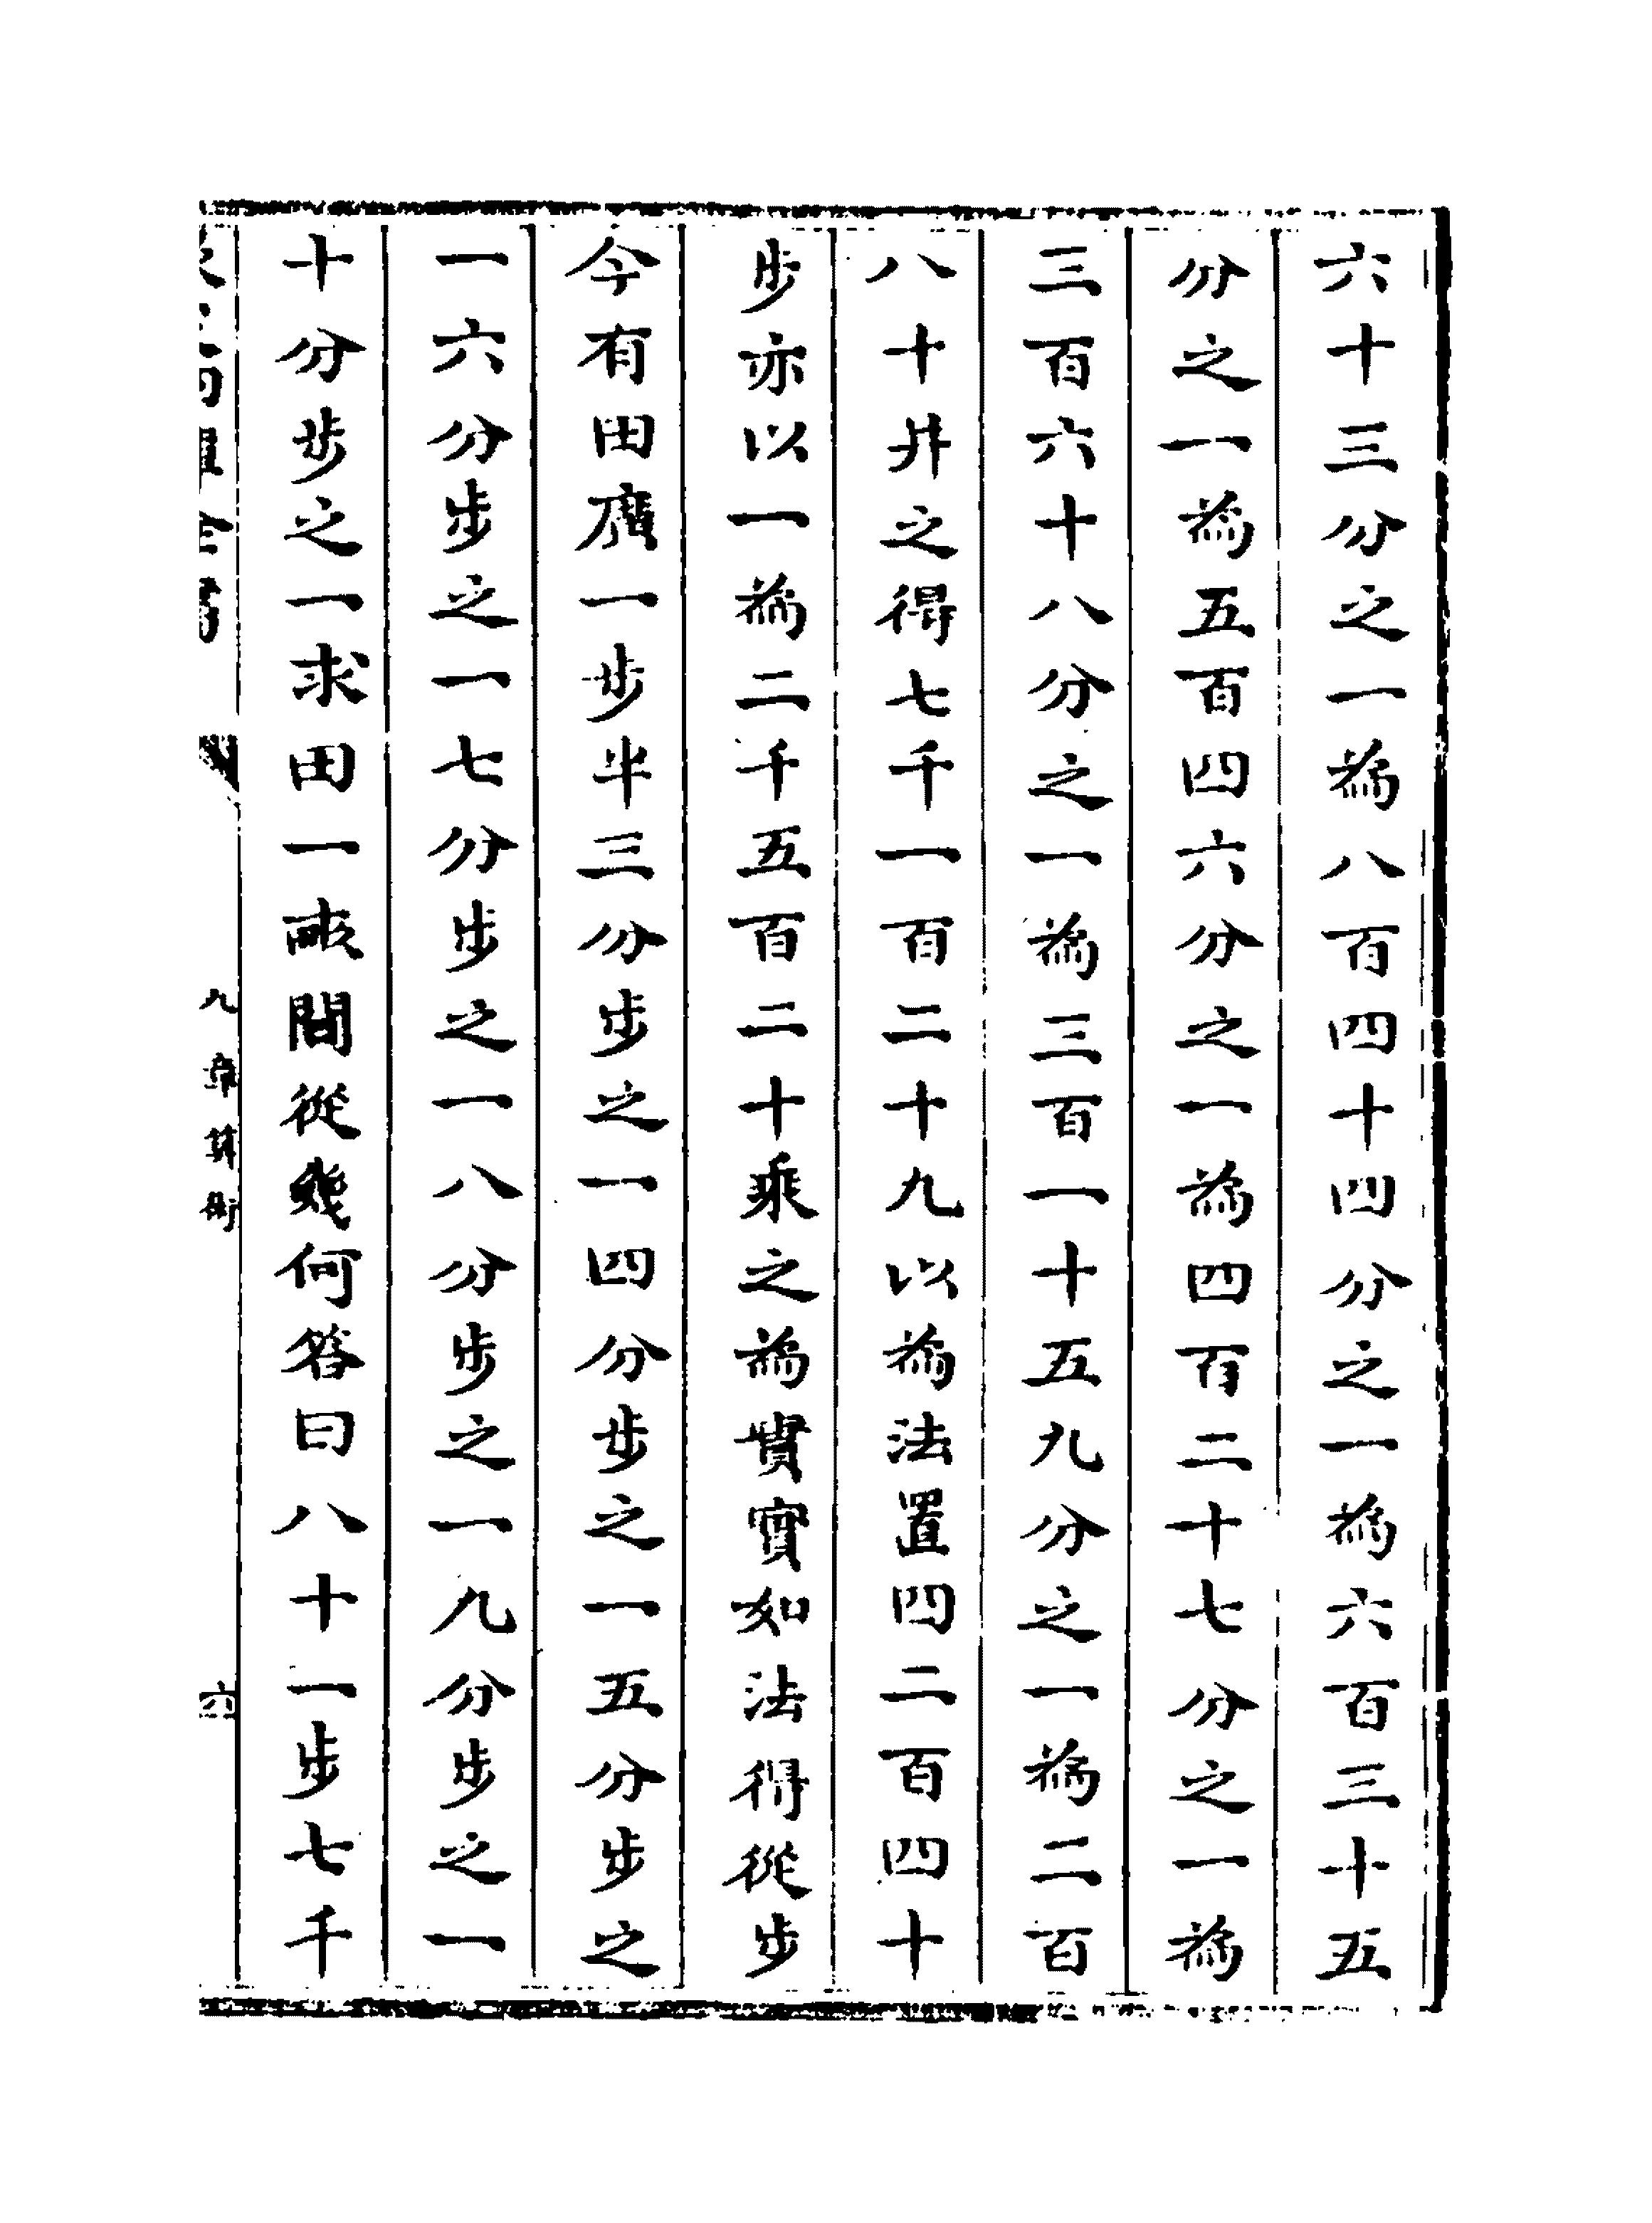 六十三分之一為八百四十四分之一為六百三十五
分之一為五百四六分之一為四百二十七分之一為
三百六十八分之一為三百一十五九分之一為二百
八十并之得七千一百二十九以為法置四二百四十
步亦以一為二千五百二十乘之為實實如法得從步
今有田廣一步半三分步之一四分步之一五分步之
一六分步之一七分步之一八分步之一九分步之一
十分步之一求田一畝間從幾何答曰八十一步七千
九章算術
六